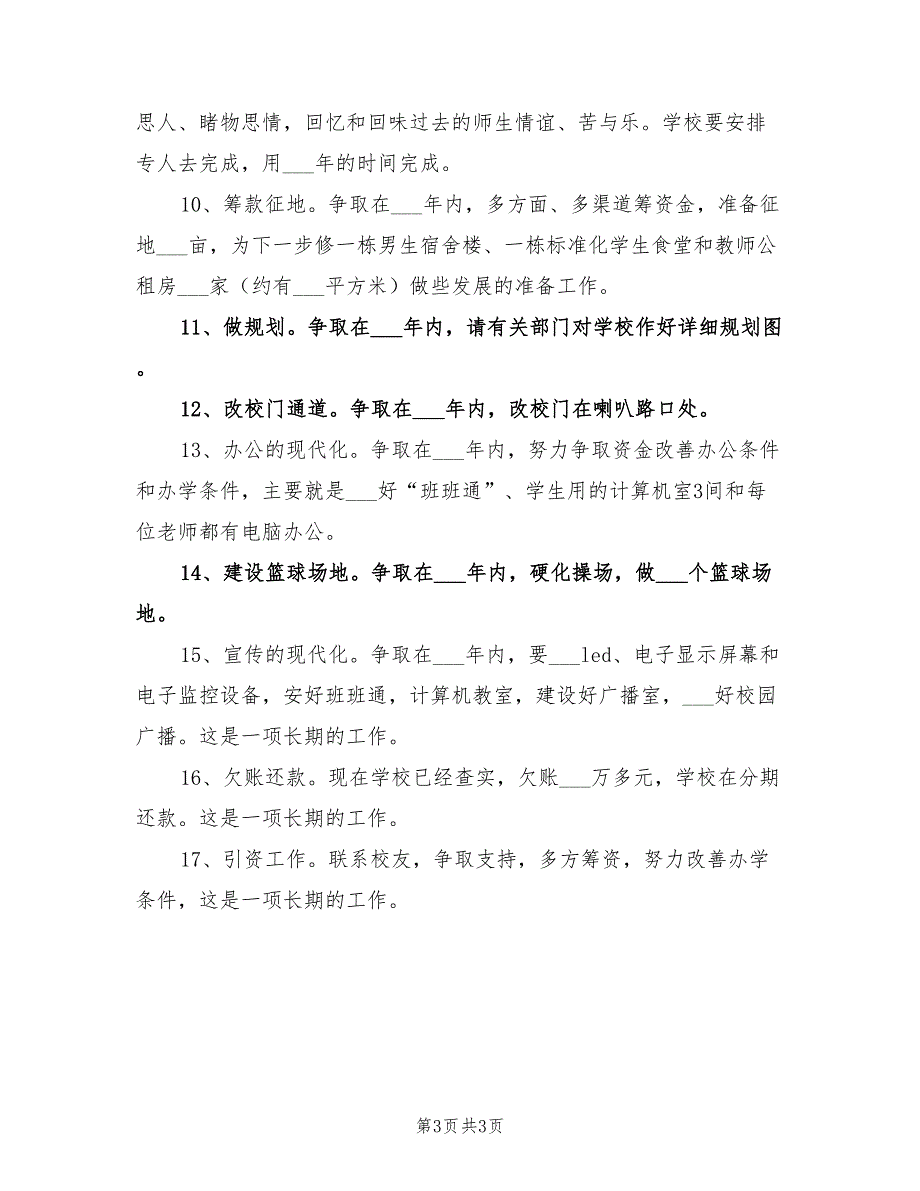 思人、睹物思情，回忆和回味过去的师生情谊、苦与乐。学校要安排
专人去完成，用___年的时间完成。
10、筹款征地。争取在___年内，多方面、多渠道筹资金，准备征
地___亩，为下一步修一栋男生宿舍楼、一栋标准化学生食堂和教师公
租房___家（约有___平方米）做些发展的准备工作。
11、做规划。争取在___年内，请有关部门对学校作好详细规划图
。
12、改校门通道。争取在___年内，改校门在喇叭路口处。
13、办公的现代化。争取在___年内，努力争取资金改善办公条件
和办学条件，主要就是___好“班班通”、学生用的计算机室3间和每
位老师都有电脑办公。
14、建设篮球场地。争取在___年内，硬化操场，做___个篮球场
地。
15、宣传的现代化。争取在___年内，要___led、电子显示屏幕和
电子监控设备，安好班班通，计算机教室，建设好广播室，___好校园
广播。这是一项长期的工作。
16、欠账还款。现在学校已经查实，欠账___万多元，学校在分期
还款。这是一项长期的工作。
17、引资工作。联系校友，争取支持，多方筹资，努力改善办学
条件，这是一项长期的工作。
第3页 共3页